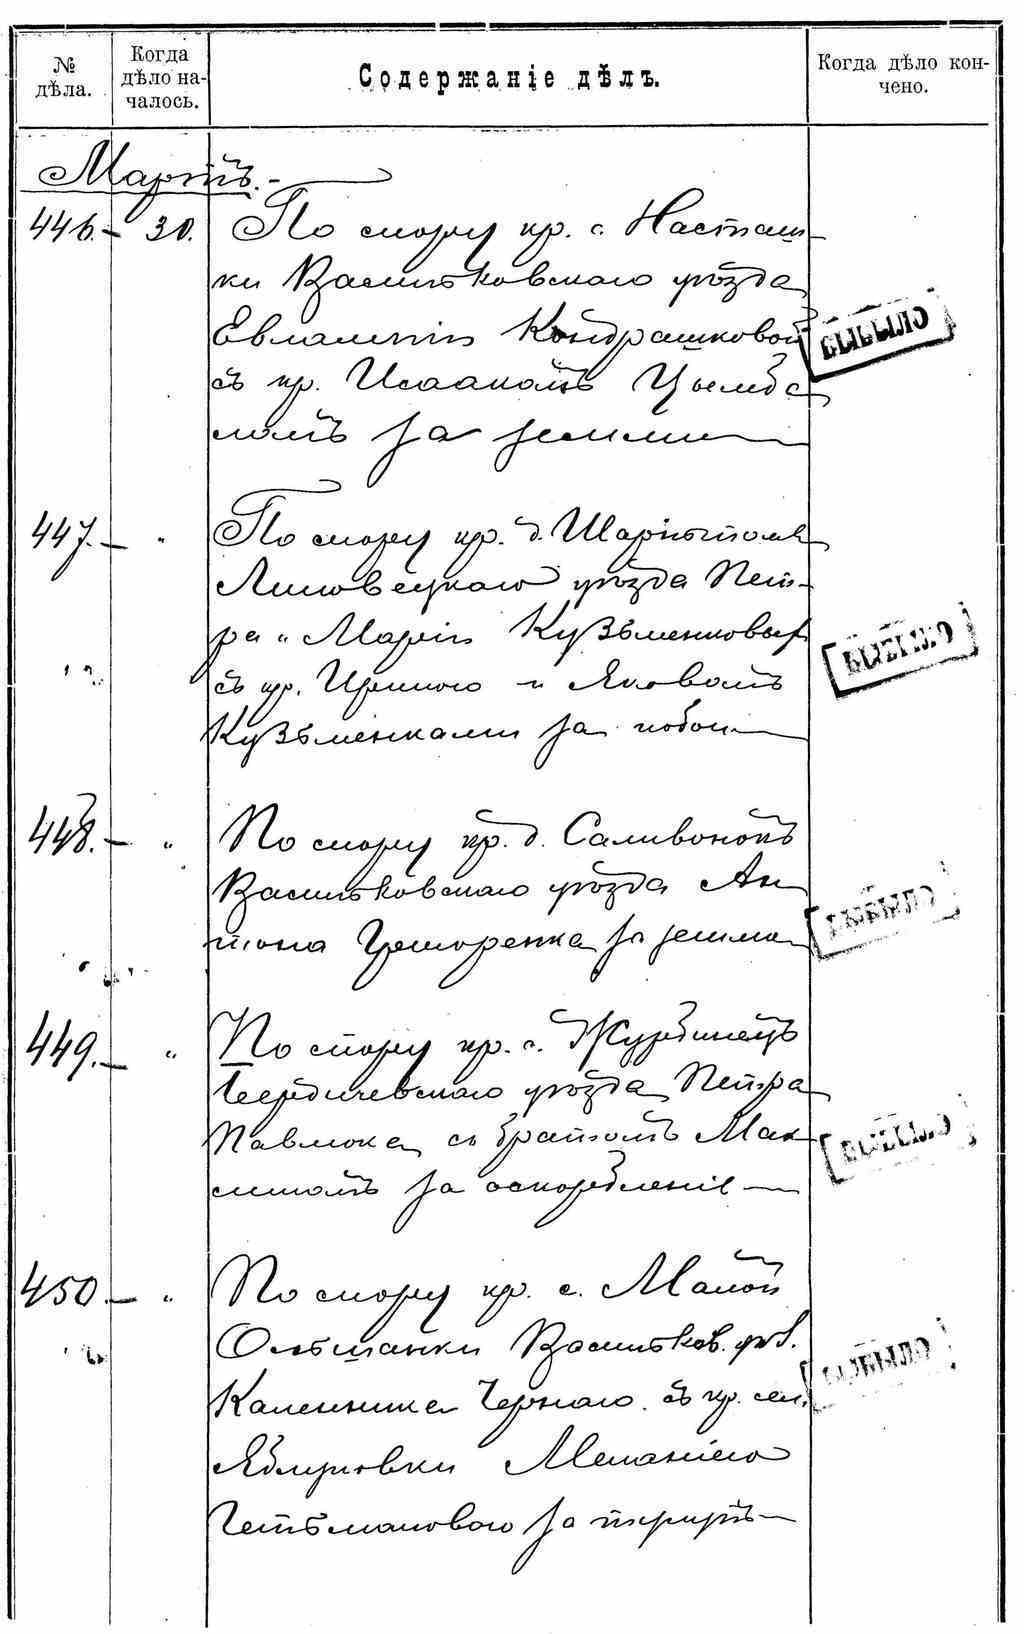 № дѣла.
Когда дѣло началось.
Содержаніе дѣлъ.
Когда дѣло кончено.
Мартъ.
446. 30. По спору кр. с. Насташ-
ки Васильковскаго уѣзда
Евлампіи Кондрашковой
съ кр. Исаакомъ Цымба
ломъ за землю
ВЫБЫЛО
447. — " По спору кр. д. Шарнѣполя
Липовецкаго уѣзда Пет-
ра и Маріи Кузьменковых
съ кр. Ириною и Яковомъ
Кузьменками за побои
ВЫБЫЛО
448. — " По спору кр. д. Саливонокъ
Васильковскаго уѣзда Ан
тона за землю
ВЫБЫЛО
449. — " По спору кр. с. Журбинецъ
Бердичевскаго уѣзда Петра
Павлюка съ братомъ Мак
симомъ за оскорбленіе
ВЫБЫЛО
450. — " По спору кр. с. Малой
Ольшанки Васильков. уѣз.
Каленика Чернаго съ кр. сел.
Яблуновки Меланіею
Гетьмановою за
ВЫБЫЛО